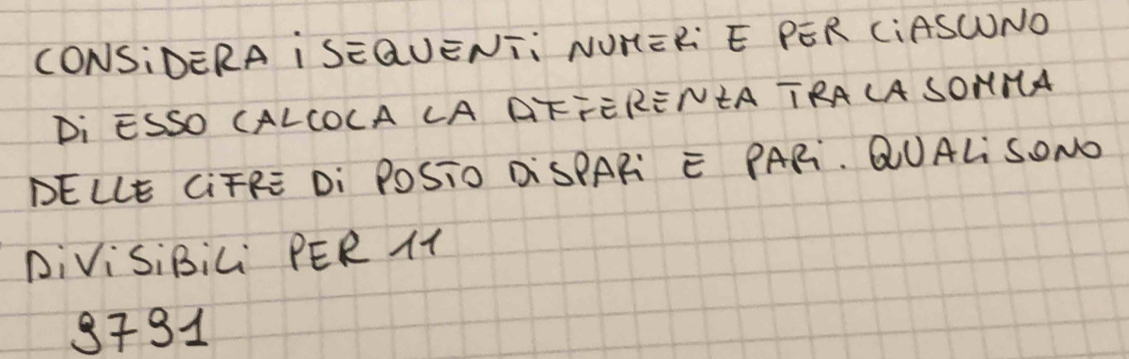 CONSIDERA I SEQUENTI NUMERI E PER CIASCUNO
DI ESSO CALCOLA LA DIFFERENZA TRA LA SOMMA
DELLE CIFRE DI POSTO DISPARI E PARI. QUALI SONO
DIVISIBILI PER 11
9791